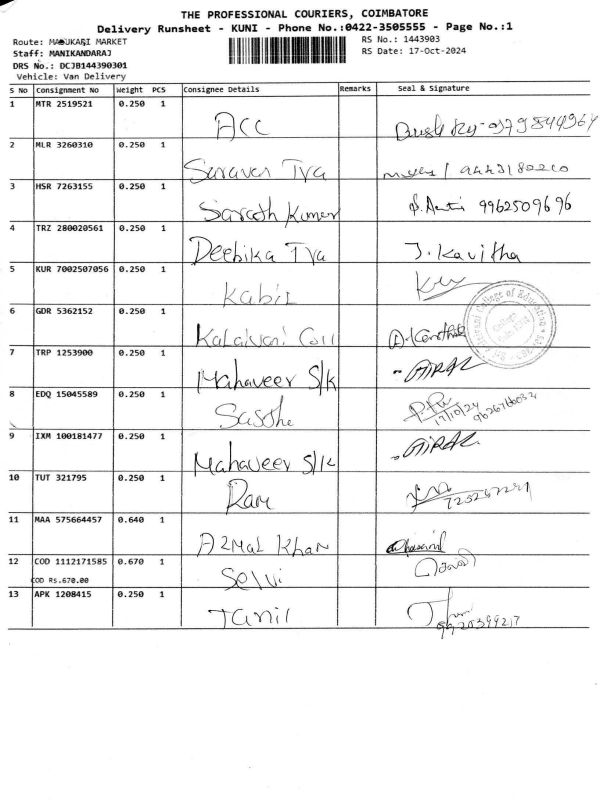 THE PROFESSIONAL COURIERS, COIMBATORE
Delivery Runsheet - KUNI - Phone No.:0422-3505555 - Page No.:1
Route: MADUKARI MARKET
RS No.: 1443903
Staff: MANIKANDARAJ
RS Date: 17-Oct-2024
DRS No.: DCJB144390301
Vehicle: Van Delivery
S No Consignment No Weight PCS Consignee Details Remarks Seal & Signature
1 MTR 2519521 0.250 1 ACC
2 MLR 3260310 0.250 1 Saravan Tva
3 HSR 7263155 0.250 1 Sarath Kumar 9962509696
4 TRZ 280020561 0.250 1 Deebika Tva J. Kavitha
5 KUR 7002507056 0.250 1 Kabil
6 GDR 5362152 0.250 1 Kalaivani Coll
College of Education
7 TRP 1253900 0.250 1 Mahaveer S/K
8 EDQ 15045589 0.250 1 17/10/24
9 IXM 100181477 0.250 1 Mahaveer S/K
10 TUT 321795 0.250 1 Ram
11 MAA 575664457 0.640 1 Azmal Khan
12 COD 1112171585 0.670 1 Selvi
COD Rs.670.00
13 APK 1208415 0.250 1 Tamil